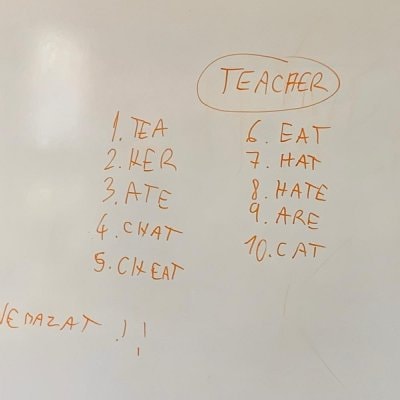 TEACHER
1. TEA
2. HER
3. ATE
4. CHAT
5. CHEAT
6. EAT
7. HAT
8. HATE
9. ARE
10. CAT
NEMAZAT !!